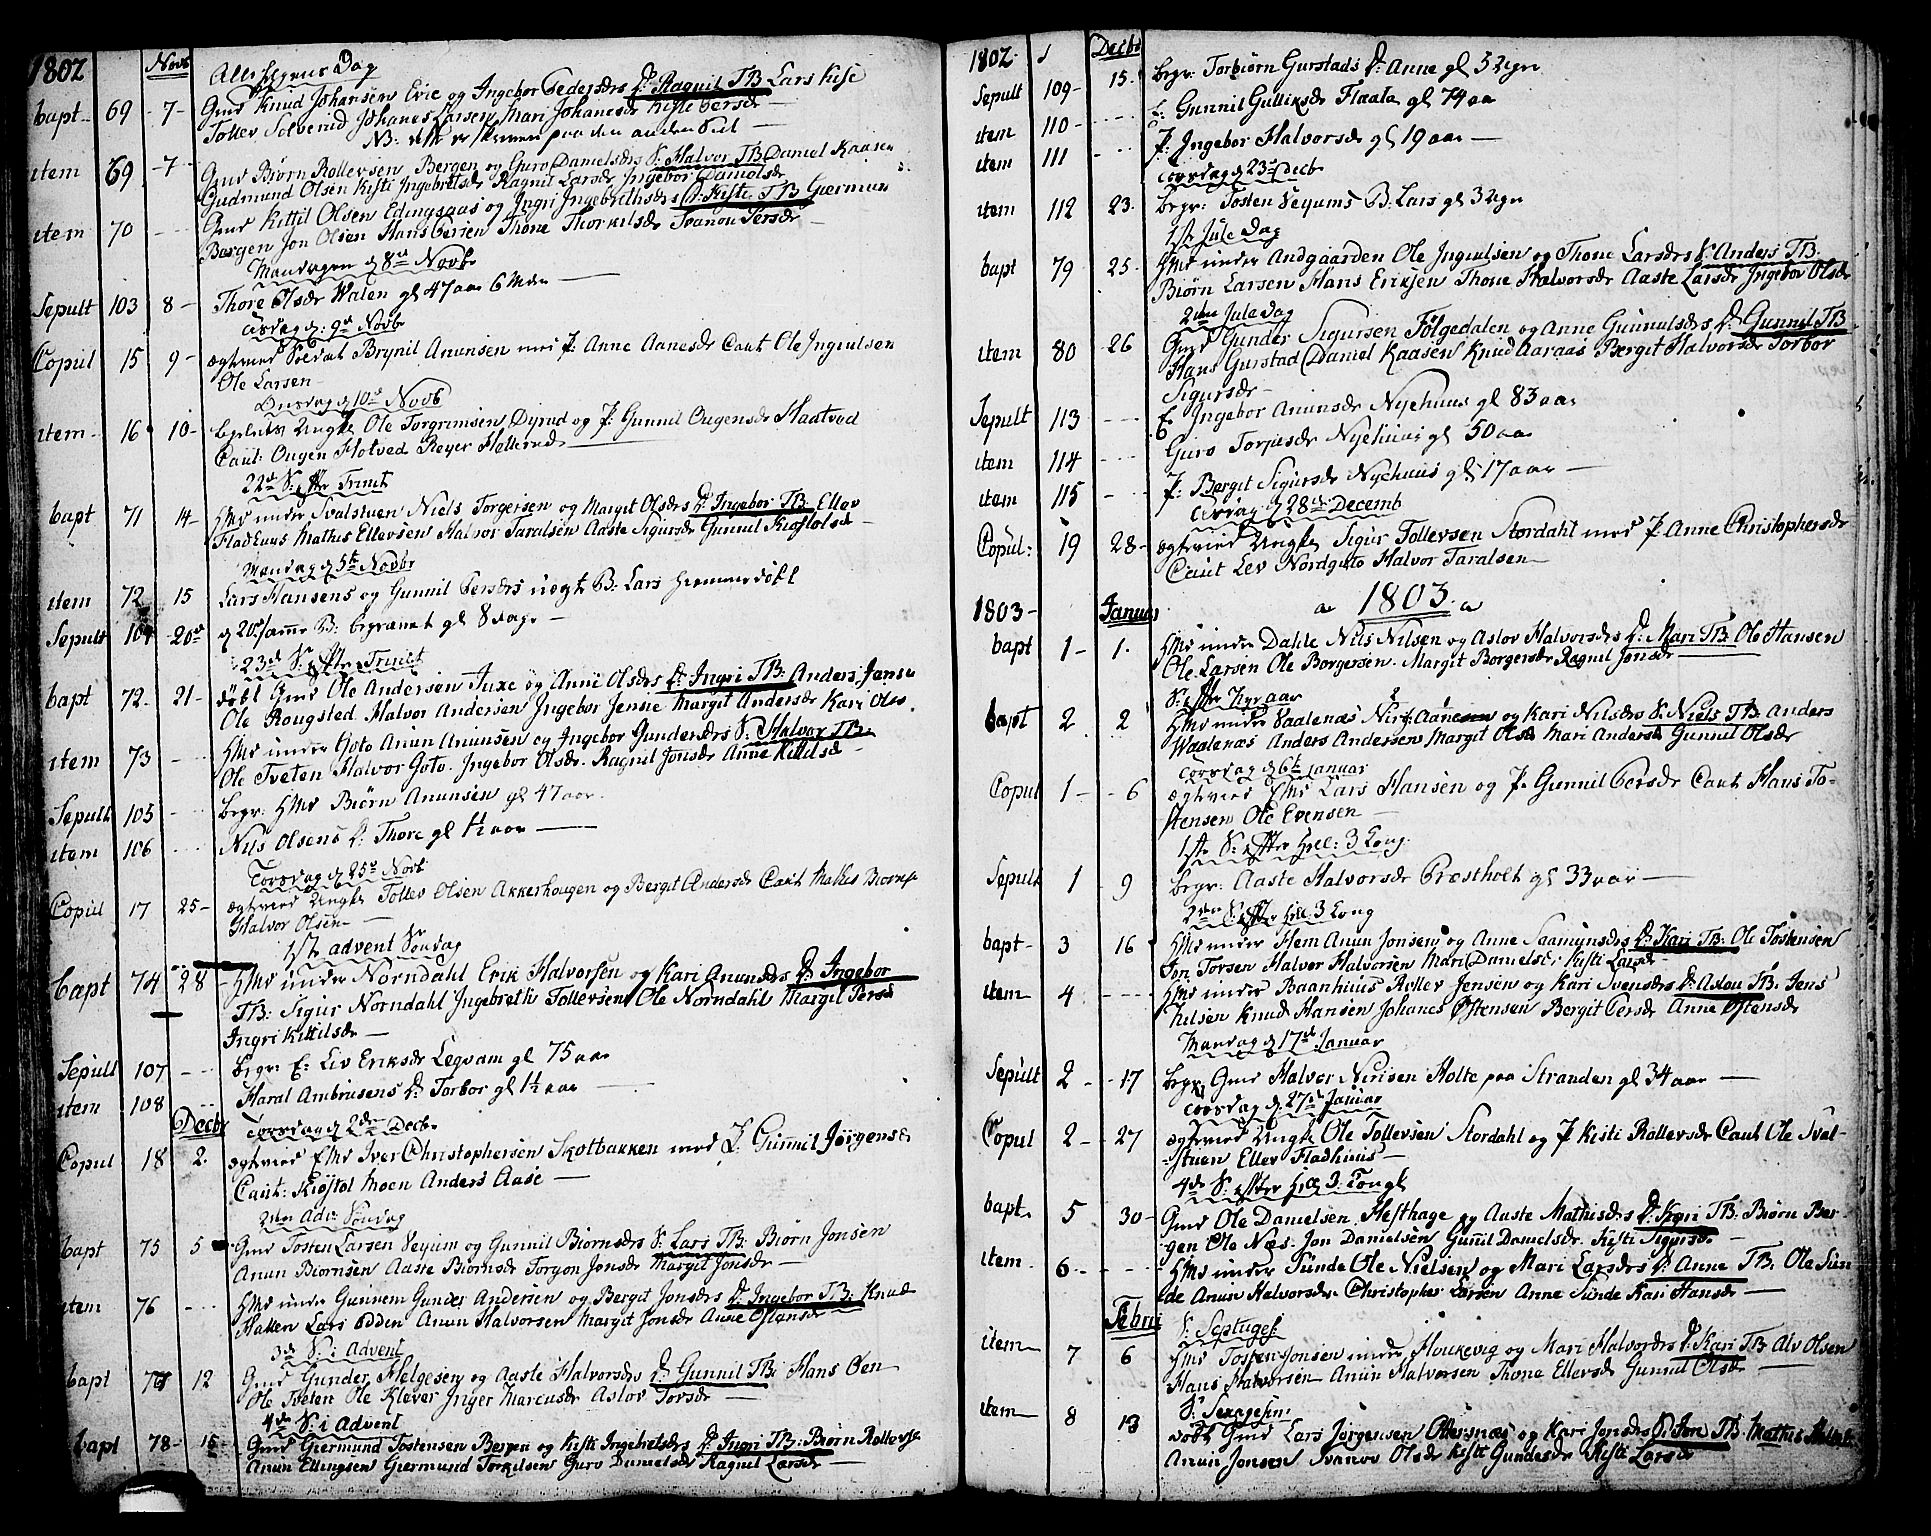 1802 Novb Alle helgens Dag
bapt 69 7 Gmd Knud Johansen Evie og Ingebor Pedersdrs D: Ragnil TB Lars Kise
Tollev Solverud Johanes Larsen Mari Johanesdr Kisti Persdr
NB:
item 69 7 Gmd Biørn Rollevsen Bergen og Guro Danielsdrs S: Halvor TB Daniel Kaasen
Gudmund Olsen Kisti Ingebretsdr Ragnil Larsdr Ingebor Danielsdr
item 70 Gmd Kittil Olsen Edingsaas og Ingri Ingebrethsdrs D: Kisti TB Giermun
Bergen Jon Olsen Hans Persen Thone Thorkilsdr Svanou Persdr
Mandagen d 8de Novb
Sepult 103 8 Thore Olsdr Walen gl 47 aar 6 Mdr
Tirsdag d: 9de Novb
Copul 15 9 ægtvied Soldat Brynil Anunsen med P. Anne Aanesdr Caut Ole Ingiulsen
Ole Larsen
Onsdag d 10de Novb
item 16 10 Ungk Ole Torgrimsen Dyrud og P: Gunnil Ougensdr Haatved
Caut: Ougen Hotved Reyer Hollerud
22de S: efter Trinit
bapt 71 14 Hmd under Svalstuen Niels Torgersen og Margit Olsdrs D: Ingebor TB: Ellev
Fladhuus Mathis Ellevsen Halvor Taralsen Aaste Sigursdr Gunnil Kiøstolsdr
Mandag d 15de Novbr
item 72 15 Lars Hansens og Gunnil Persdrs uægt B: Lars hiemmedøbt
Sepult 104 20de d 20de samme B: begravet gl 8 dage
23de S: efter Trinit
bapt 72 21 døbt Gmd Ole Andersen Juxe og Anne Olsdrs D: Ingri TB: Anders Jensen
Ole Rougsted Halvor Andersen Ingebor Jensie Margit Andersdr Kari Olsdr
item 73 Hmd under Goto Anun Anunsen og Ingebor Gundersdrs S: Halvor TB:
Ole Tveten Halvor Goto. Ingebor Olsdr. Ragnil Jonsdr Anne Kittilsdr
Sepult 105 begr: Hmd Biørn Anunsen gl 47 aar
item 106 Nils Olsens D: Thore gl 1½ aar
Torsdag d 25de Novb
Copul 17 25 ægtvied Ungk Tollev Olsen Akkerhougen og Bergit Andersdr Caut Mathis Biørns
Halvor Olsen
1ste advent Søndag
bapt 74 28 Hmd under Norndahl Erik Halvorsen og Kari Anunsdrs D: Ingebor
TB: Sigur Norndahl Ingebreth Tollevsen Ole Norndahl Margit Persdr
Ingri Kittilsdr
Sepult 107 begr: E: Liv Eriksdr Legvam gl 75 aar
item 108 Haral Ambrusens D: Torbor gl 1½ aar
Decbr Torsdag d 2den Decbr
Copul 18 2. ægtvied Hmd Iver Christophersen Skotbakken med P. Gunnil Jørgensdr
Caut: Kiøstol Moen Anders Aase
2den Adv: Søndag
bapt 75 5 Gmd Tosten Larsen Seyum og Gunnil Biørnsdrs S: Lars TB: Biørn Jonsen
Anun Biørnsen Aaste Biørnsdr Torgon Jonsdr Margit Jonsdr
item 76 Hmd under Gunnem Gunder Andersen og Bergit Jonsdrs D: Ingebor TB: Knud
Hallen Lars Odden Anun Halvorsen Margit Jonsdr Anne Ostensdr
3de S: i Advent
bapt 77 12 Gmd Gunder Helgesen og Aaste Halvorsdrs D: Gunnil TB: Hans Øen
Ole Tveten Ole Klever Inger Marcusdr Aslov Torsdr
4de S: i Advent
bapt 78 15 Gmd Giermund Tostensen Bergen og Kisti Ingebretsdrs D: Ingri TB: Biørn Rollevsen
Anun Ellingsen Giermund Torkilsen Guro Danielsdr Ragnil Larsdr
1802 Decbr
Sepult 109 15. begr: Torbiørn Gurstads D: Anne gl 3 Uger
item 110 E: Gunnil Gulliksdr Flaata gl 74 aar
item 111 P: Ingebor Halvorsdr gl 19 aar
Torsdag d 23de Decb
item 112 23. begr: Tosten Seyums B: Lars gl 3 Uger
1ste Jule Dag
bapt 79 25 Hmd under Andgaarden Ole Ingiulsen og Thone Larsdrs S: Anders TB:
Biørn Larsen Hans Eriksen Thone Halvorsdr Aaste Larsdr Ingebor Olsdr
2den Jule Dag
item 80 26 Gmd Gunder Sigursen Følgedalen og Anne Gunnulsdrs D: Gunnil TB
Hans Gurstad Daniel Kaasen Knud Aaraas Bergit Halvorsdr Torbor
Sigursdr
Sepult 113 E. Ingebor Anunsdr Nyehuus gl 83 aar
item 114 Guro Torjusdr Nyehuus gl 50 aar
item 115 P: Bergit Sigursdr Nyehuus gl 17 aar
Tirsdag d 28de Decemb
Copul: 19 28 ægtvied Ungk Sigur Tollevsen Stordahl med P Anne Christophersdr
Caut Lev Nordgoto Halvor Taralsen
1803 Januar 1803
bapt 1 1. Hmd under Dahle Nils Nilsen og Aslov Halvorsdrs D: Mari TB: Ole Hansen
Ole Larsen Ole Borgersen. Margit Borgersdr Ragnil Jonsdr
S: efter Nyeaar
bapt 2 2 Hmd under Vaalenæs Nirij Aanesen og Kari Nilsdrs S: Niels TB: Anders
Waalenæs Anders Andersen Margit Olsdr Mari Andersdr Gunnil Olsdr
Torsdag d 6te Januar
Copul 1 6 ægtvied Hmd Lars Hansen og P. Gunnil Persdr Caut Hans To-
stensen Ole Evensen
1ste S: efter Hell: 3 Kong.
Sepult 1 9 begr: Aaste Halvorsdr Præstholt gl 33 aar
2den S: efter Hell: 3 Kong
bapt 3 16 Hmd under Hem Anun Jonsen og Anne Saamunsdrs D: Kari TB: Ole Tostensen
Jon Torsen Halvor Halvorsen Mari Danielsdr Kisti Larsdr
item 4 Hmd under Baanhuus Rollev Jensen og Kari Svensdrs D: Aslou TB: Jens
Nilsen Knud Hansen Johanes Østensen Bergit Persdr Anne Østensdr
Mandag d 17de Januar
Sepult 2 17 begr Gmd Halvor Nirisen Holte paa Stranden gl 34 aar
Torsdag d. 27de Januar
Copul 2 27 ægtvied Ungk Ole Tollevsen Stordahl og P Kisti Rollevsdr Caut Ole Sval-
stuen Ellev Fladhuus
4de S: efter Hell 3: Kong
bapt 5 30 Gmd Ole Danielsen Hesthage og Aaste Mathisdrs D: Kari TB: Biørn Ber-
gen Ole Næs. Jon Danielsen Gunil Danielsdr. Kisti Sigursdr
item 6 Hmd under Sunde Ole Nielsen og Mari Larsdrs D: Anne TB: Ole Sun
de Anun Halvorsdr Christopher Larsen Anne Sunde Kari Hansdr
Febru S: Septuges
item 7 6 Hmd Tosten Jonsen under Houkevig og Mari Halvordrs D: Kari TB Alv Olsen
Hans Halvorsen Anun Halvorsen Thone Ellevsdr Gunnil Olsdr
S: Sexagesim
item 8 13 døbt Gmd Lars Jørgensen Ottersnæs og Kari Jonsdrs S: Jon TB: Mathis
Anun Jonsen Svanov Olsdr Kisti Gundesdr Kisti Larsdr